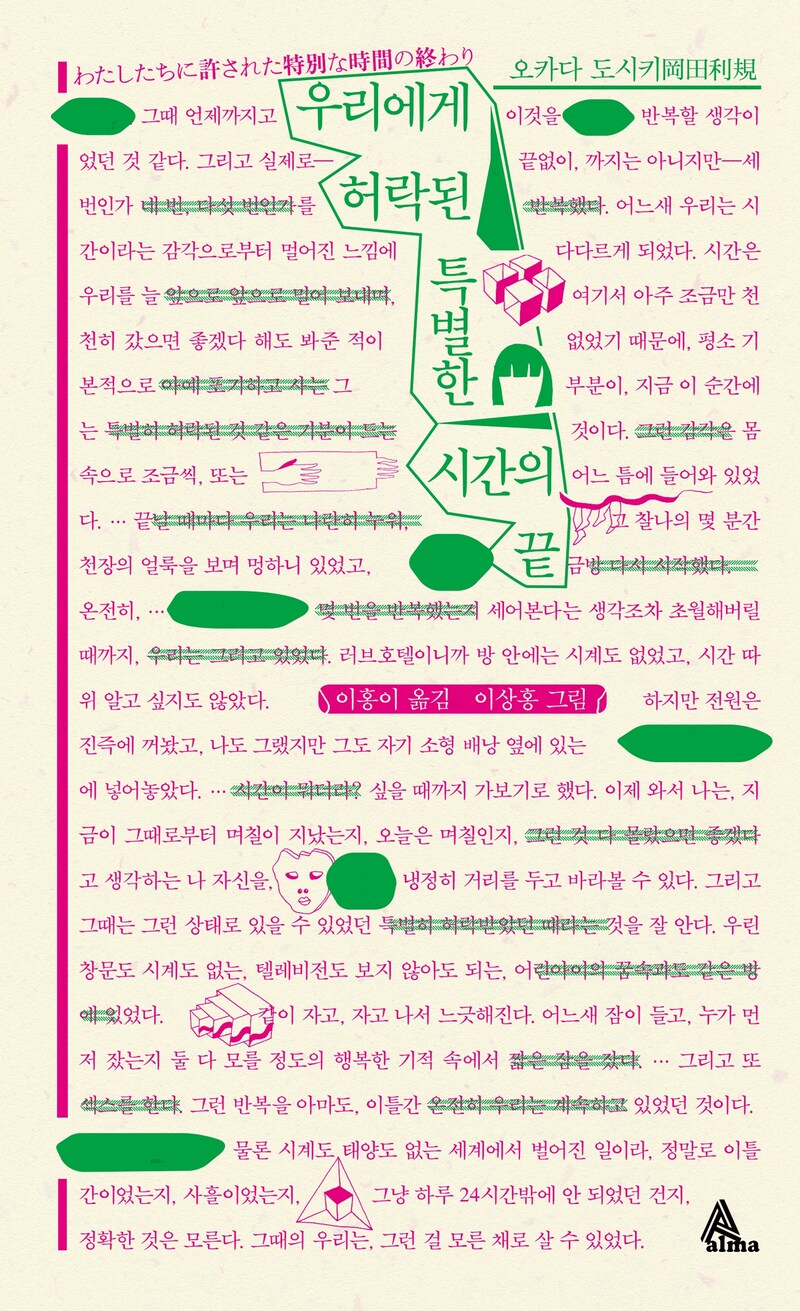 わたしたちに許された特別な時間の終わり
오카다 도시키岡田利規
우리에게
허락된
특별한
시간의
끝
그때 언제까지고 이것을 반복할 생각이
었던 것 같다. 그리고 실제로— 끝없이, 까지는 아니지만—세
번인가 네 번, 다섯 번인가를 반복했다. 어느새 우리는 시
간이라는 감각으로부터 멀어진 느낌에 다다르게 되었다. 시간은
우리를 늘 앞으로 앞으로 밀어 보내며, 여기서 아주 조금만 천
천히 갔으면 좋겠다 해도 봐준 적이 없었기 때문에, 평소 기
본적으로 아예 포기하고 사는 그 부분이, 지금 이 순간에
는 특별히 허락된 것 같은 기분이 드는 것이다. 그런 감각은 몸
속으로 조금씩, 또는 어느 틈에 들어와 있었
다. … 끝날 때마다 우리는 나란히 누워, 고 찰나의 몇 분간
천장의 얼룩을 보며 멍하니 있었고, 금방 다시 시작했다.
온전히, … 몇 번을 반복했는지 세어본다는 생각조차 초월해버릴
때까지, 우리는 그러고 있었다. 러브호텔이니까 방 안에는 시계도 없었고, 시간 따
위 알고 싶지도 않았다. 하지만 전원은
이홍이 옮김 이상홍 그림
진즉에 꺼놨고, 나도 그랬지만 그도 자기 소형 배낭 옆에 있는
에 넣어놓았다. … 시간이 뭐더라? 싶을 때까지 가보기로 했다. 이제 와서 나는, 지
금이 그때로부터 며칠이 지났는지, 오늘은 며칠인지, 그런 것 다 몰랐으면 좋겠다
고 생각하는 나 자신을, 냉정히 거리를 두고 바라볼 수 있다. 그리고
그때는 그런 상태로 있을 수 있었던 특별히 허락받았던 때라는 것을 잘 안다. 우린
창문도 시계도 없는, 텔레비전도 보지 않아도 되는, 어린아이의 꿈속과도 같은 방
에 있었다. 같이 자고, 자고 나서 느긋해진다. 어느새 잠이 들고, 누가 먼
저 잤는지 둘 다 모를 정도의 행복한 기적 속에서 짧은 잠을 잤다. … 그리고 또
섹스를 한다. 그런 반복을 아마도, 이틀간 온전히 우리는 계속하고 있었던 것이다.
물론 시계도 태양도 없는 세계에서 벌어진 일이라, 정말로 이틀
간이었는지, 사흘이었는지, 그냥 하루 24시간밖에 안 되었던 건지,
정확한 것은 모른다. 그때의 우리는, 그런 걸 모른 채로 살 수 있었다.
alma